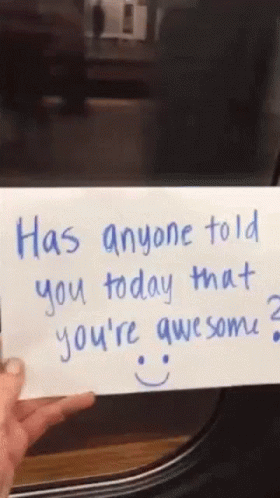 Has anyone told
you today that
you're awesome?